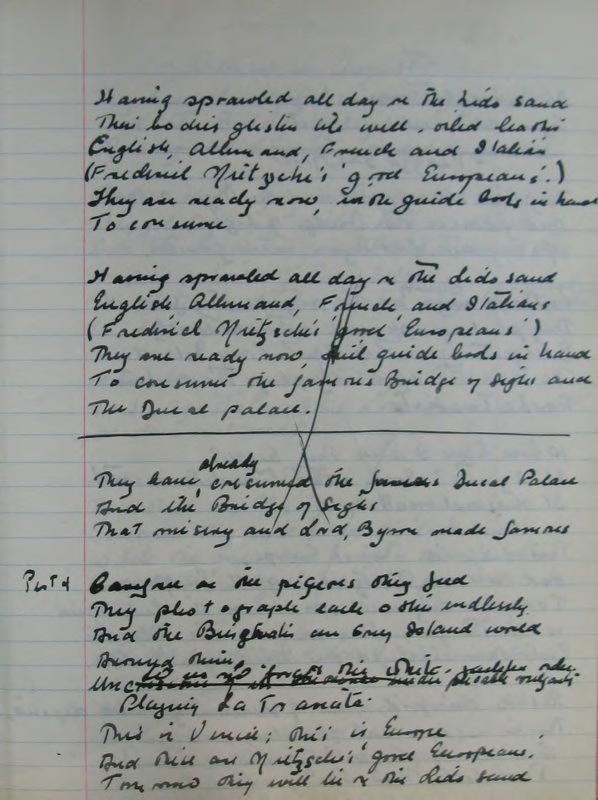 Having sprawled all day on the Lido sand
Their bodies glisten like well-oiled leather
English, Allemand, French and Italian
(Frederick Nietzsche's 'good Europeans'.)
They are ready now, with guide books in hand
To consume
Having sprawled all day on the Lido sand
English Allemand, French, and Italians
(Frederick Nietzsche's 'good Europeans')
They are ready now, guide books in hand
To consume the famous Bridge of Sighs and
The Ducal palace.
already
They have consumed the famous Ducal Palace
And the Bridge of Sighs
That misery and Lord Byron made famous
on the pigeons they feed
They photograph each other endlessly.
And the an Grey Island world
Around them,
the white
Playing La Traviata.
This is Venice; this is Europe
And these are Nietzsche's good Europeans.
Tomorrow they will lie on the Lido sand